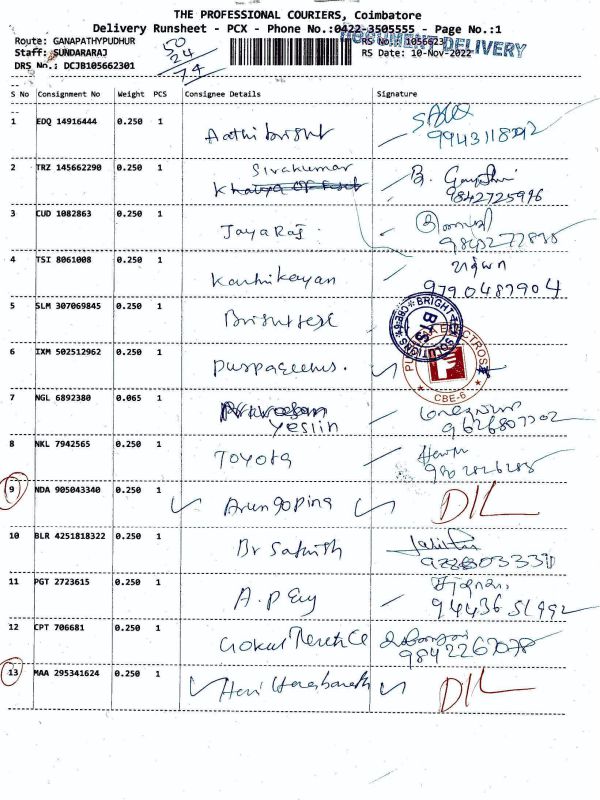 THE PROFESSIONAL COURIERS, Coimbatore
Delivery Runsheet - PCX - Phone No.:0422-3505555 - Page No.:1
Route: GANAPATHYPUDHUR
RS No.: 1056623
DOCUMENT DELIVERY
Staff: SUNDARARAJ
RS Date: 10-Nov-2022
DRS No.: DCJB105662301
50
24
74
S No Consignment No Weight PCS Consignee Details Signature
1 EDQ 14916444 0.250 1 Aathi bright
2 TRZ 145662290 0.250 1 Sivakumar B.
9842725996
3 CUD 1082863 0.250 1 JayaRaj
4 TSI 8061008 0.250 1 Karthikeyan
9790487904
5 SLM 307069845 0.250 1
BRIGHT SOLUTIONS CBE-6
BTS
6 IXM 502512962 0.250 1
ELECTROS
CBE-6
7 NGL 6892380 0.065 1 Yeslin
9626807702
8 NKL 7942565 0.250 1 TOYOTA
9 NDA 905043340 0.250 1 Arun gopina D/L
10 BLR 4251818322 0.250 1 Br Sathish
11 PGT 2723615 0.250 1 A.P
9443651992
12 CPT 706681 0.250 1 Gokul
9842267078
13 MAA 295341624 0.250 1 D/L